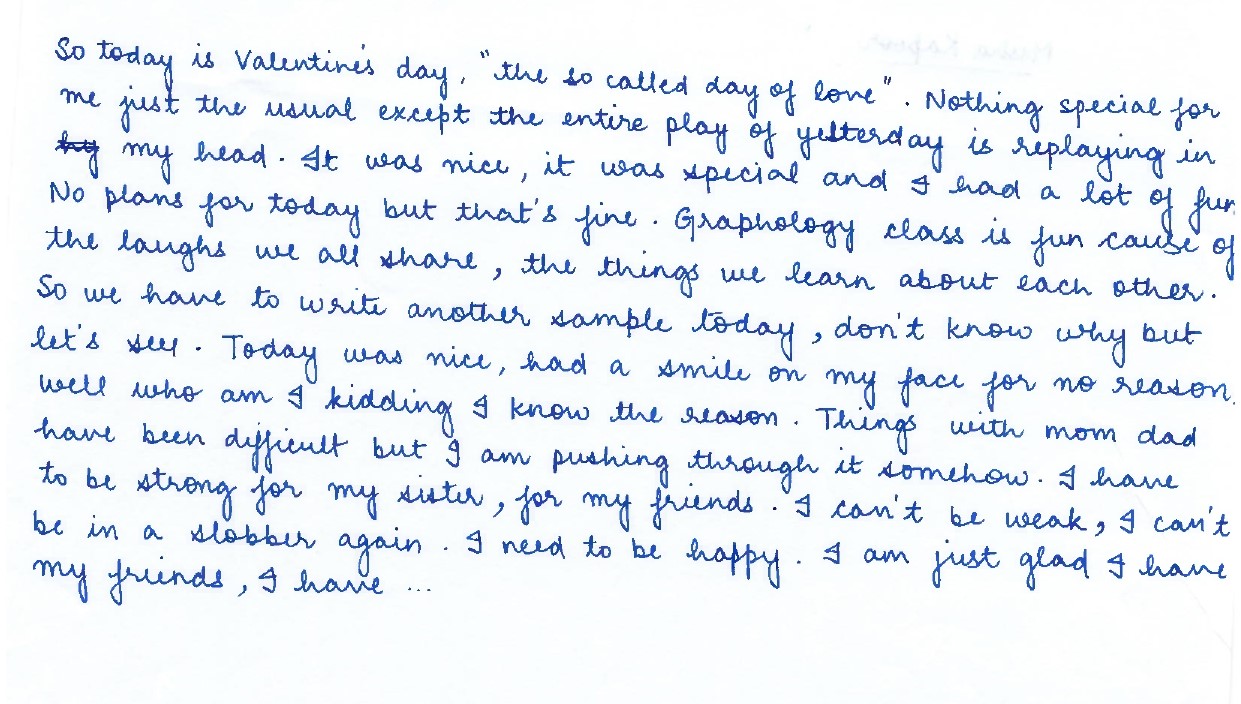 So today is Valentine's day, "the so called day of love". Nothing special for
me just the usual except the entire play of yesterday is replaying in
my head. It was nice, it was special and I had a lot of fun
No plans for today but that's fine. Graphology class is fun cause of
the laughs we all share, the things we learn about each other.
So we have to write another sample today, don't know why but
let's see. Today was nice, had a smile on my face for no reason.
well who am I kidding I know the reason. Things with mom dad
have been difficult but I am pushing through it somehow. I have
to be strong for my sister, for my friends. I can't be weak, I can't
be in a slobber again. I need to be happy. I am just glad I have
my friends, I have ...